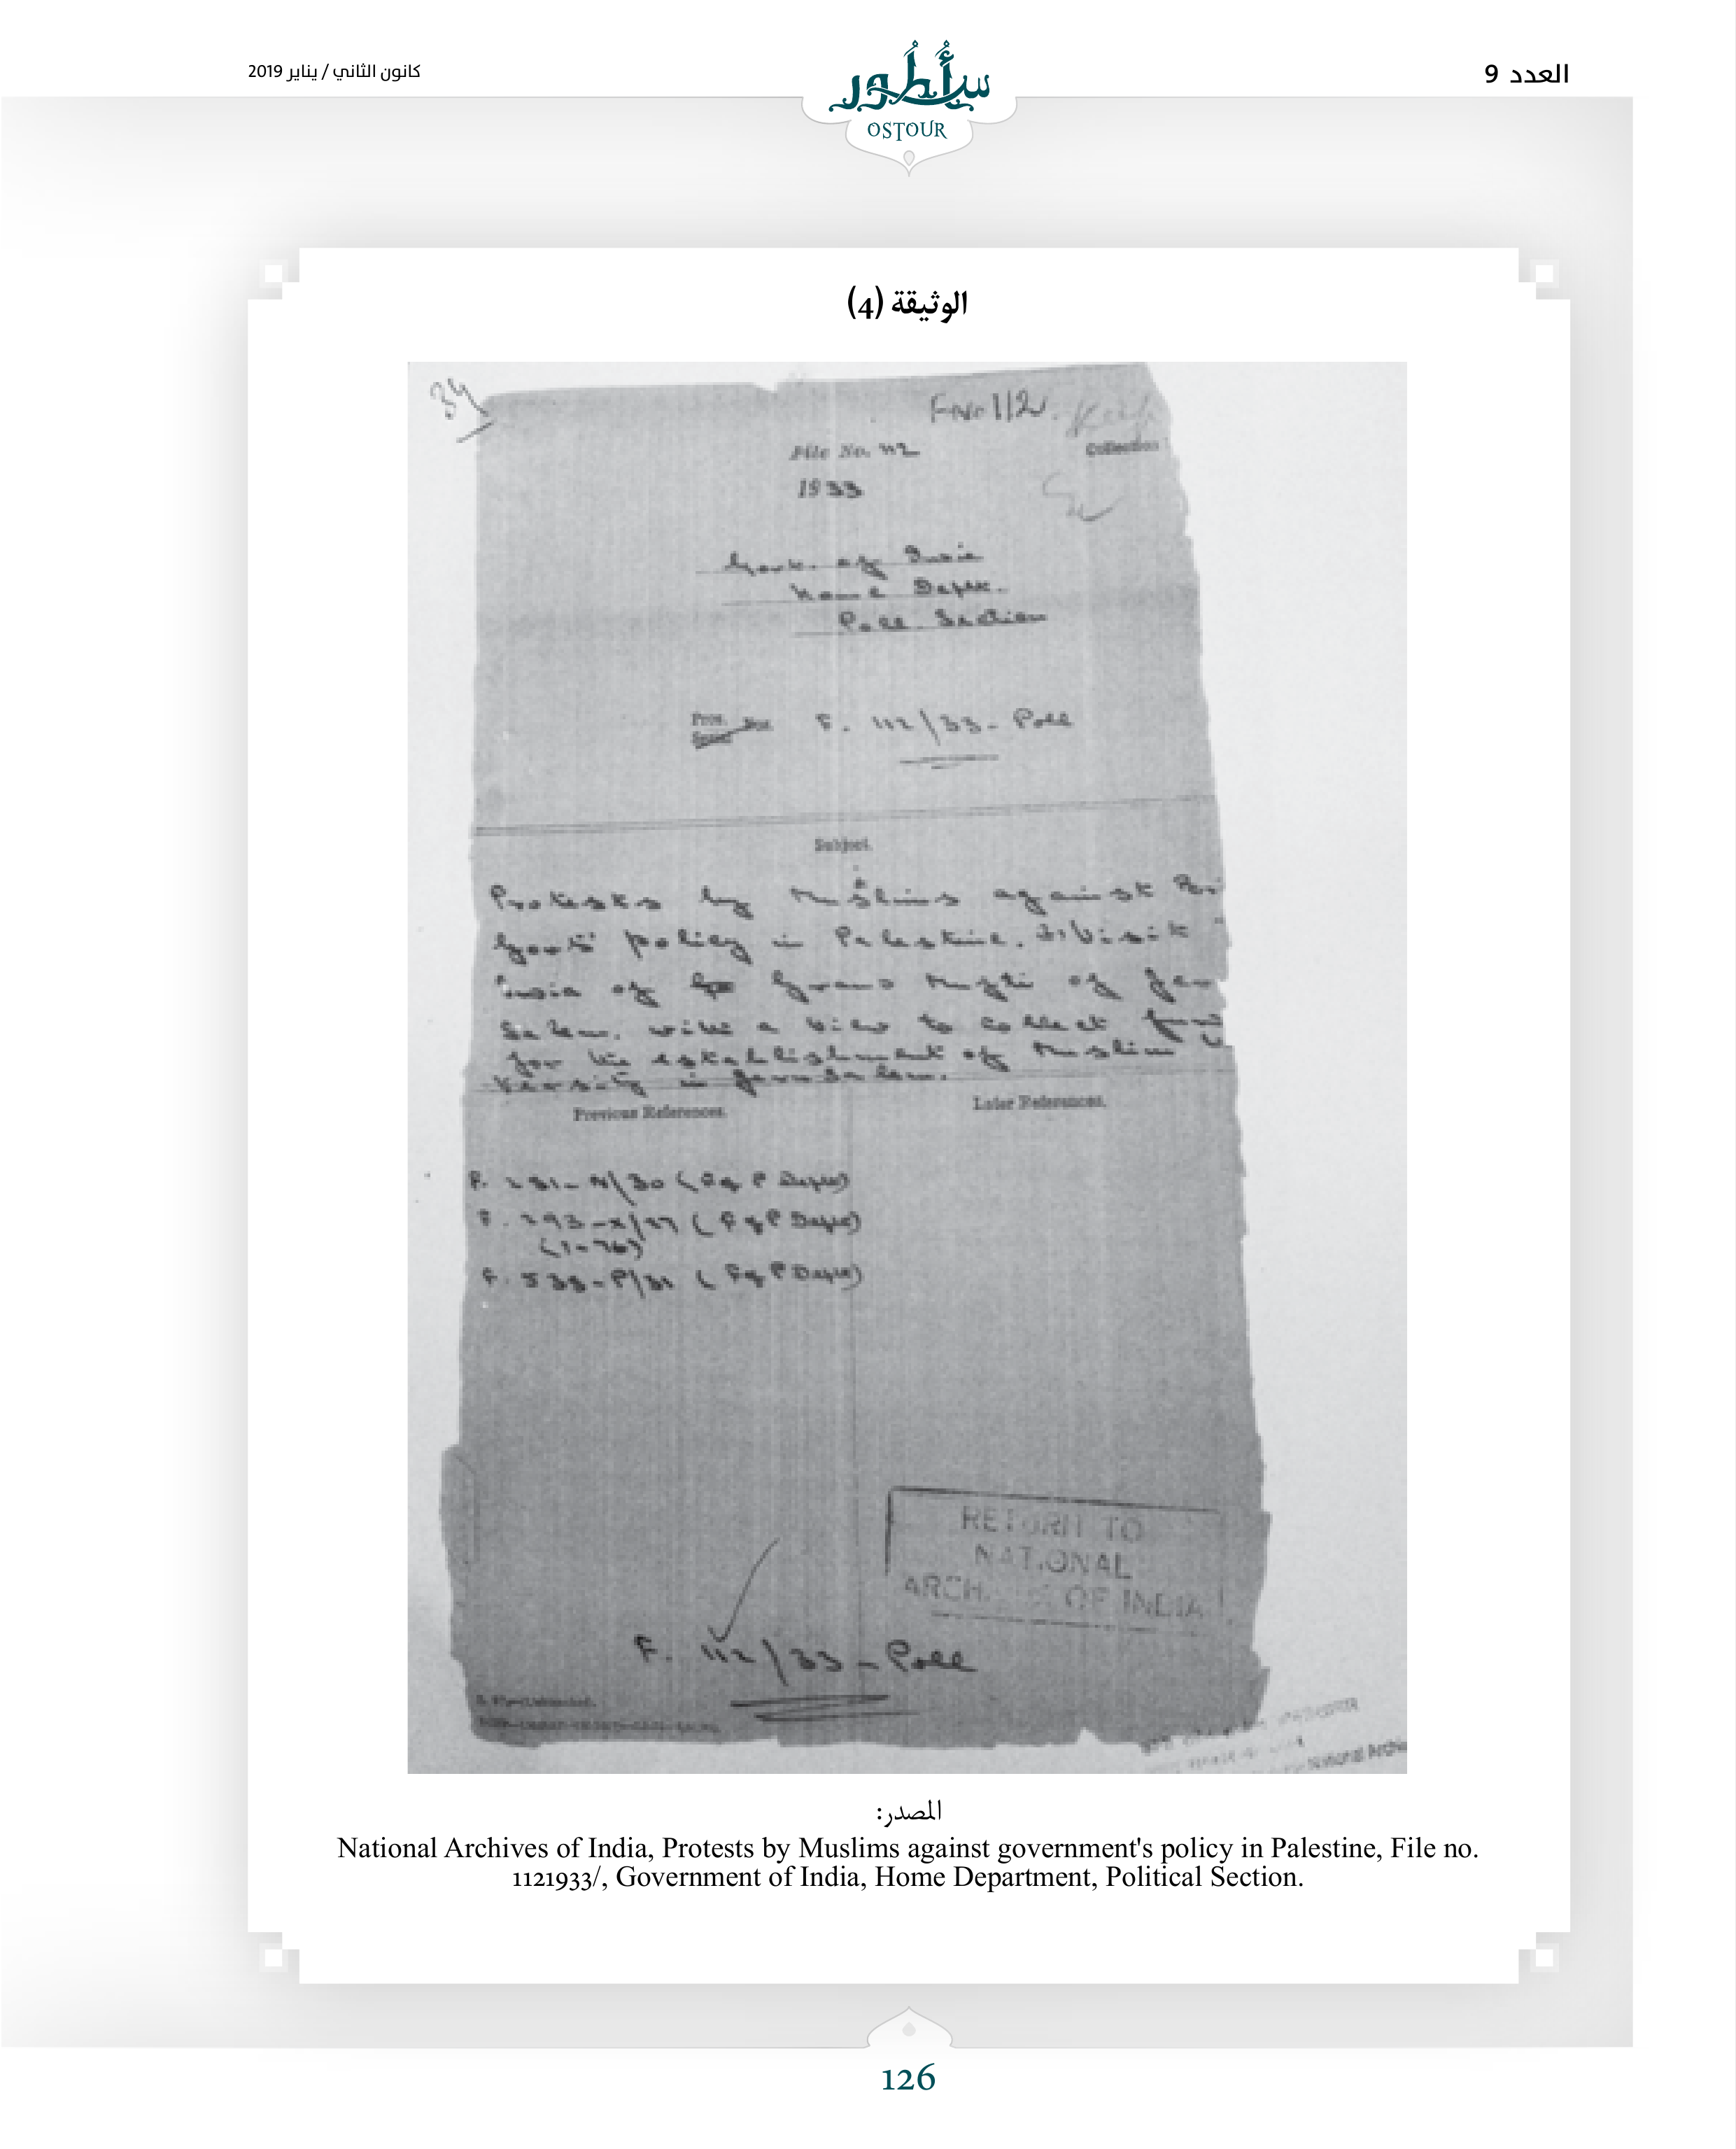 العدد 9
سأطور
OSTOUR
كانون الثاني / يناير 2019
الوثيقة (4)
34
F No 112
File No. 112
Collection
1933
Govt. of India
Home Deptt.
Poll. Section
Pros. Nos. F. 112/33 - Poll
Subject.
Protests by Muslims against
Govts' policy in Palestine. Visit
India of Grand Mufti of Jeru
Salem. with a view to collect
for the establishment of Muslim
versity in Jerusalem.
Previous References.
Later References.
(F & P Deptt)
(F & P Deptt)
(F & P Deptt)
RETURN TO
NATIONAL
OF INDIA
F. 112/33 - Poll
National Archi
المصدر:
National Archives of India, Protests by Muslims against government's policy in Palestine, File no.
1121933/, Government of India, Home Department, Political Section.
126